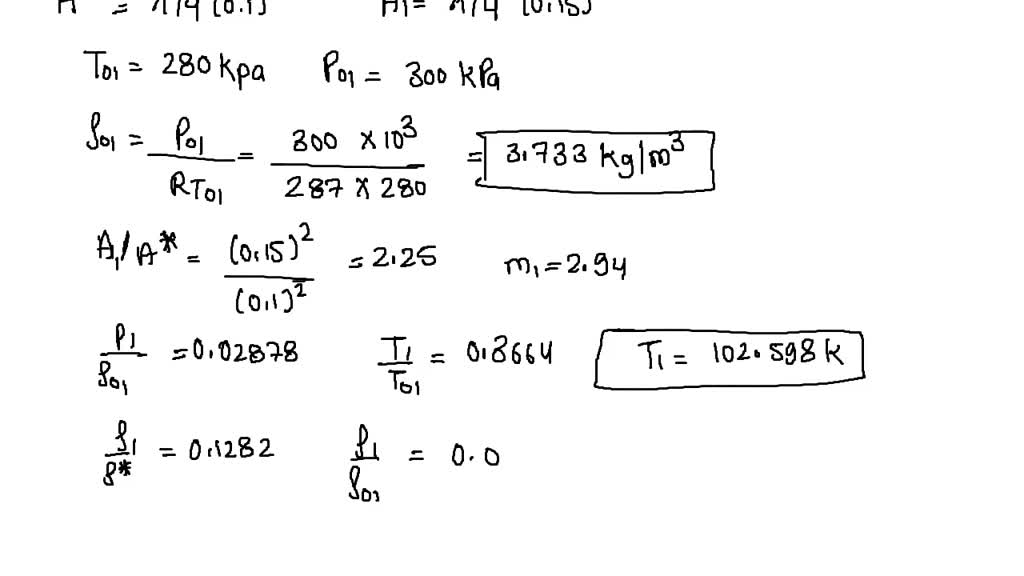 = π/4 (0.1) A1 = π/4 (0.15)
T01 = 280 kpa P01 = 300 kPa
ρ01 = P01 / RT01 = 300 × 10³ / 287 × 280 = 3.733 kg/m³
A1/A* = (0.15)² / (0.1)² = 2.25 m1 = 2.94
P1/ρ01 = 0.02878 T1/T01 = 0.3664 T1 = 102.598 k
ρ1/ρ* = 0.1282 ρ1/ρ01 = 0.0